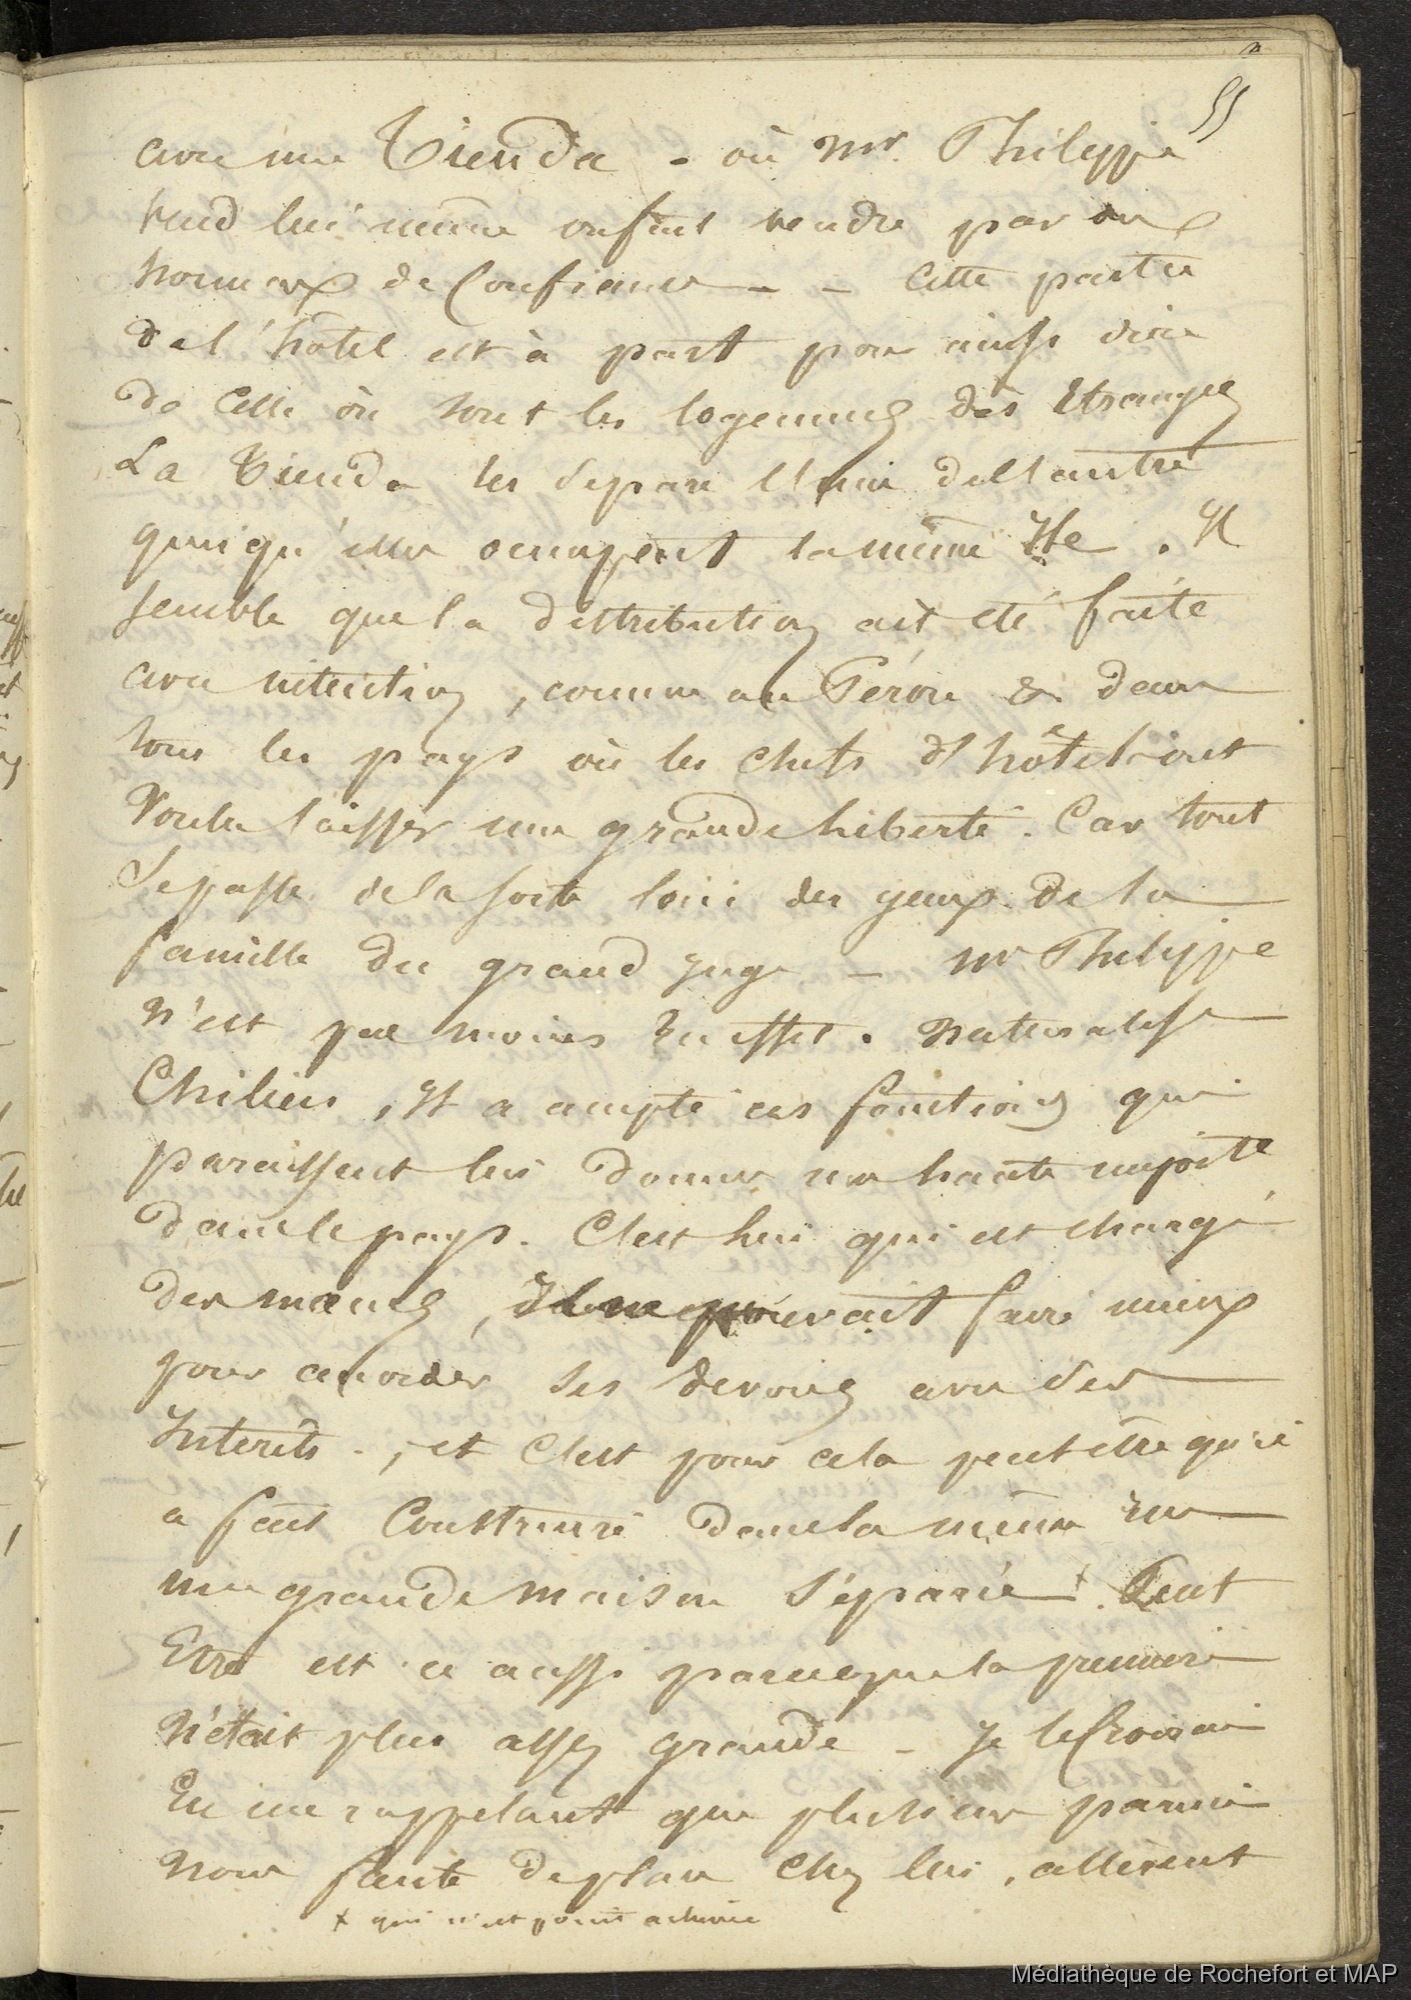 55
avec une Tienda - où Mr. Philippe
vend lui même ou fait vendre par un
homme de Confiance - - Cette partie
de l'hôtel est à part pour ainsi dire
de Celle où sont les logemens des Etrangers
La Tienda les separe l'une de l'autre
quoiqu'elles occupent la même Ile. Il
semble que la distribution ait été faite
avec intention, comme au Pérou & dans
tous les pays où les chefs d'hôtel ont
Voulu laisser une grande liberté. Car tout
se passe de la sorte loin des yeux de la
famille du grand Juge - Mr Philippe
n'est pas moins En effet. Naturalisé
Chilien, Il a accepté ces fonctions qui
paraissent lui donner une haute
dans le pays. C'est lui qui est chargé
des mœurs, Il ne pouvait faire mieux
pour accorder ses devoirs avec ses
Interêts -, et C'est pour cela peut être qu'il
a fait Construire dans la même rue
une grande maison séparée +. Peut
Etre est ce aussi parceque la premiere
n'était plus assez grande - Je le Croirai
En me rappelant que plusieurs parmi
nous faute de place Chez lui, allèrent
+ qui n'est point achevée
Médiathèque de Rochefort et MAP